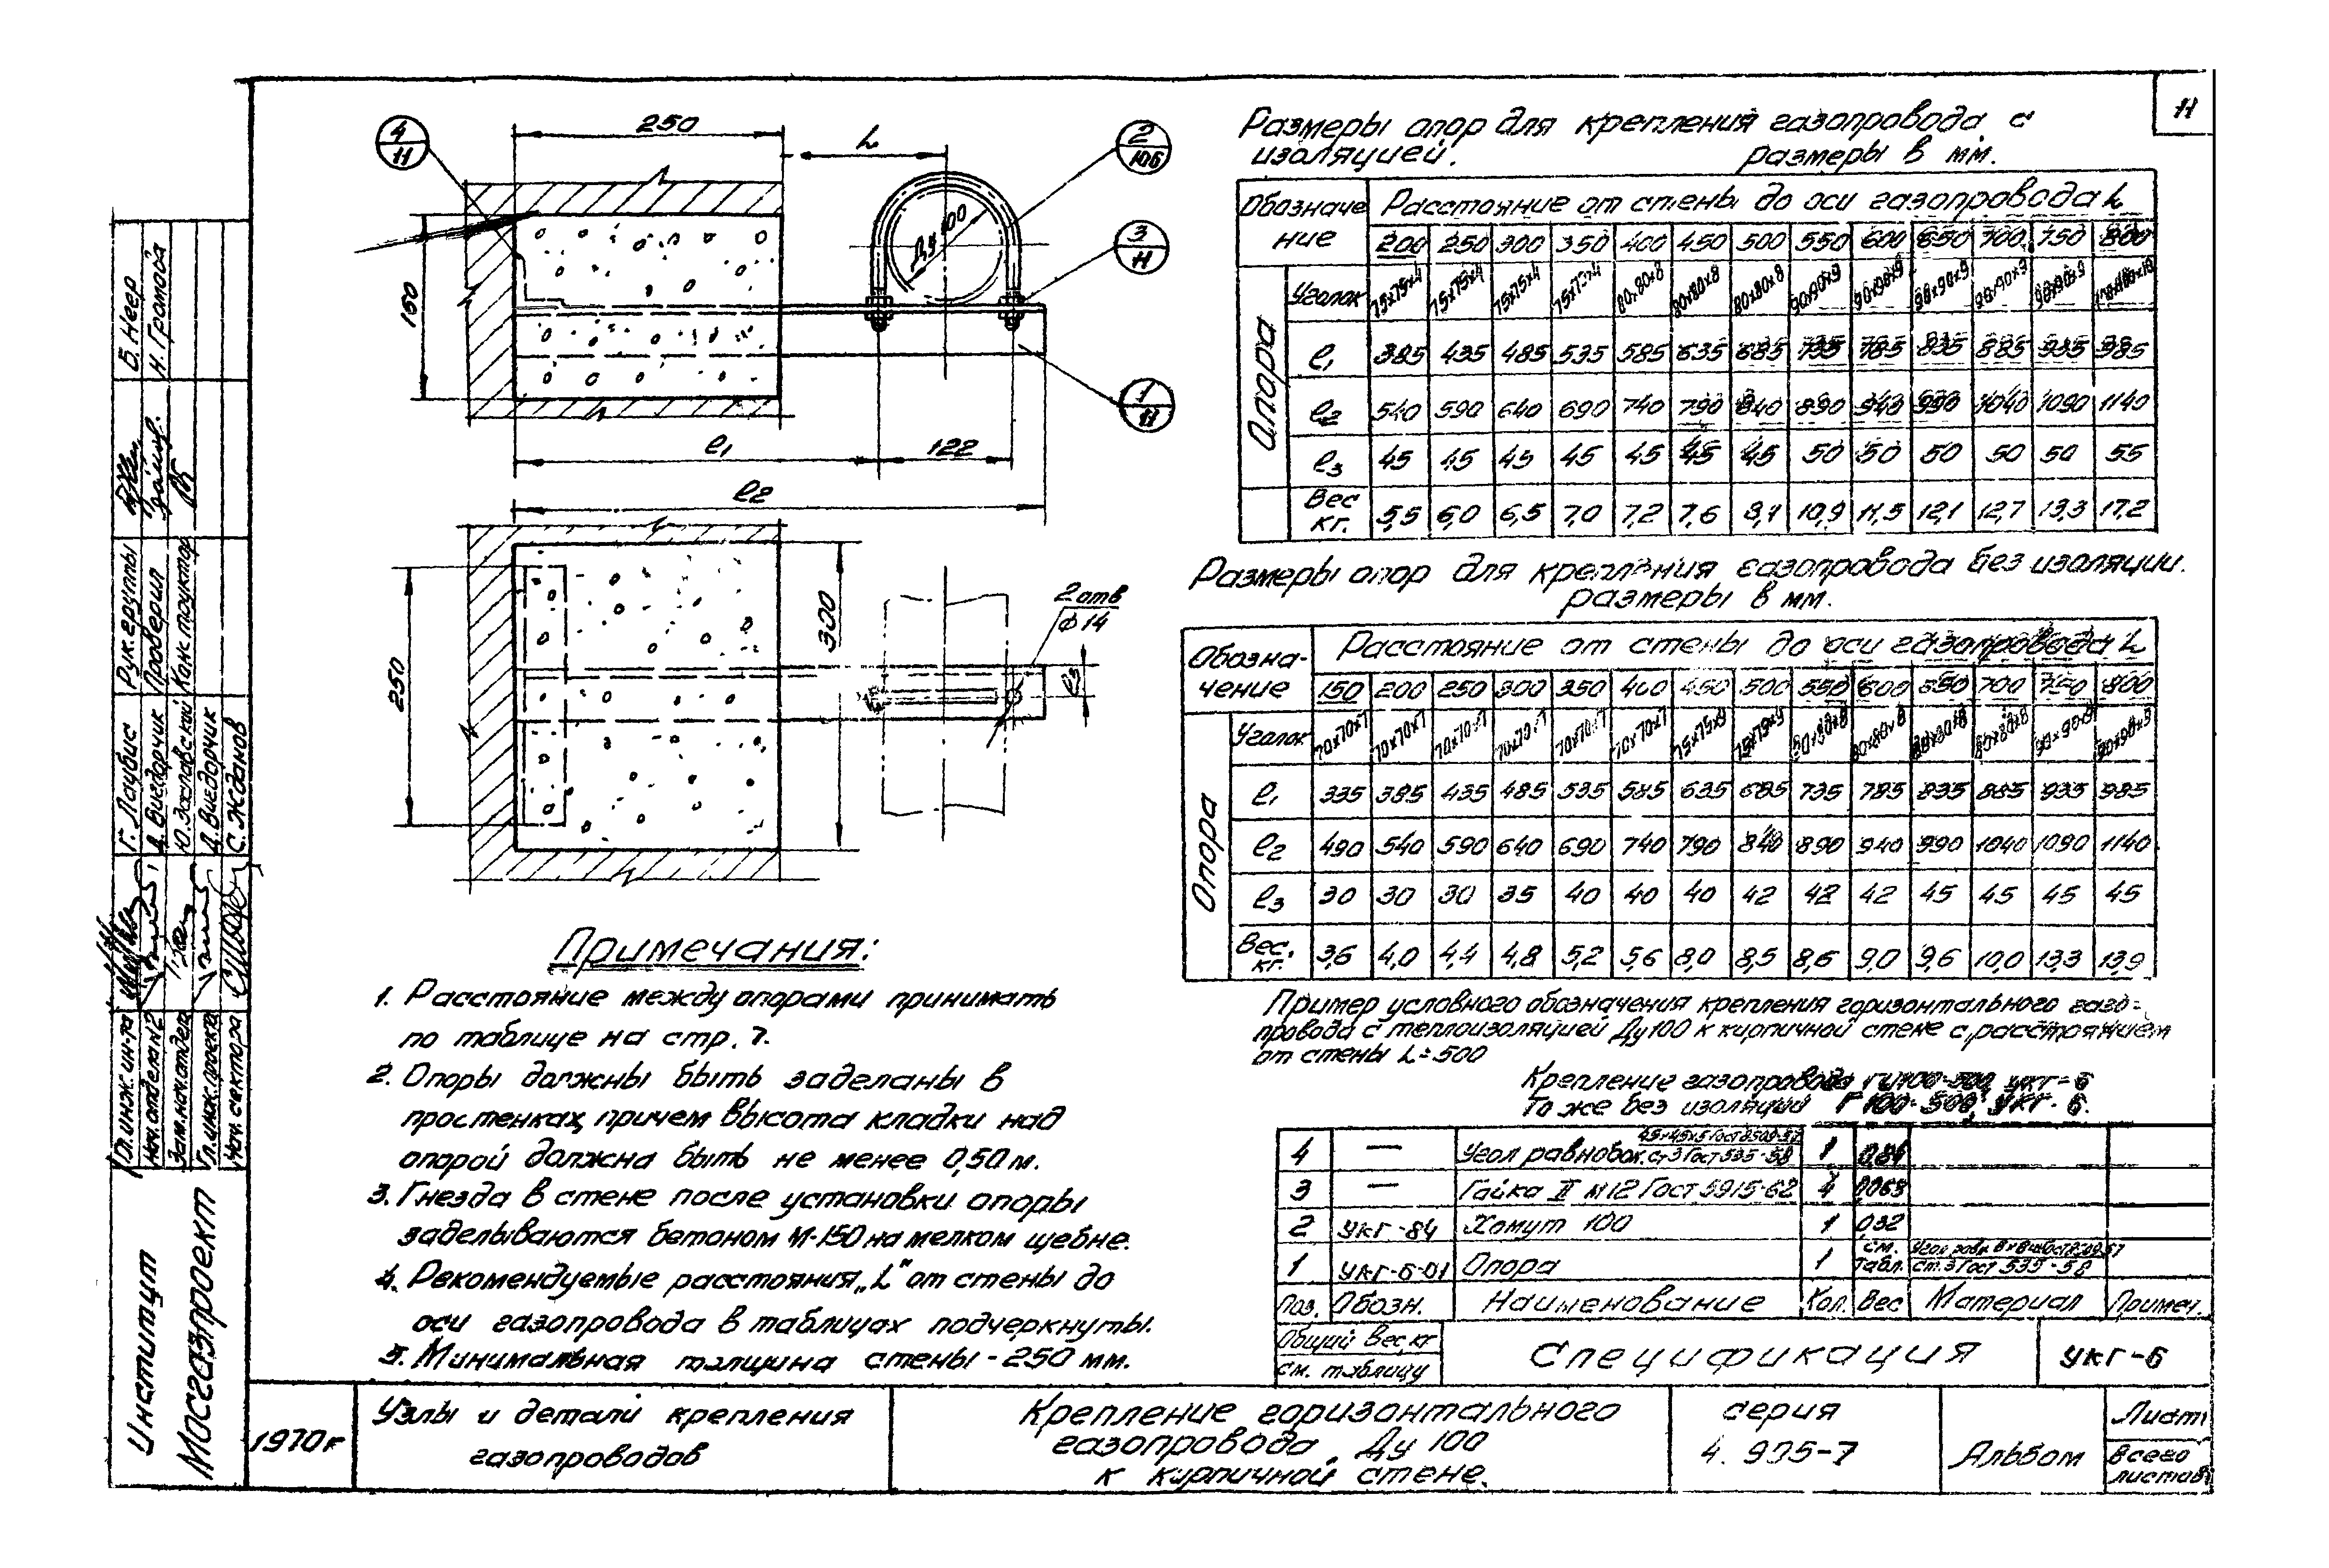 11
250
L
4
11
2
106
3
11
1
11
Ду 100
160
l1
122
l2
250
300
2 отв
ф 14
l3
Размеры опор для крепления газопровода с
изоляцией.
размеры в мм.
Обозначение
Расстояние от стены до оси газопровода L
200 250 300 350 400 450 500 550 600 650 700 750 800
Опора
Уголок 75x75x4 75x75x4 75x75x4 75x75x4 80x80x8 80x80x8 80x80x8 90x90x9 90x90x9 90x90x9 90x90x9 90x90x9
l1 385 435 485 535 585 635 685 735 785 835 885 935 985
l2 540 590 640 690 740 790 840 890 940 990 1040 1090 1140
l3 45 45 45 45 45 45 45 50 50 50 50 50 55
Вес кг. 5,5 6,0 6,5 7,0 7,2 7,6 8,1 10,9 11,5 12,1 12,7 13,3 17,2
Размеры опор для крепления газопровода без изоляции.
размеры в мм.
Обозна-
чение
Расстояние от стены до оси газопровода L
150 200 250 300 350 400 450 500 550 600 650 700 750 800
Опора
Уголок 70x70x7 70x70x7 70x70x7 70x70x7 70x70x7 70x70x7 75x75x9 75x75x9 80x80x8 80x80x8 80x80x8 80x80x8 90x90x9 90x90x9
l1 335 385 435 485 535 585 635 685 735 785 835 885 935 985
l2 490 540 590 640 690 740 790 840 890 940 990 1040 1090 1140
l3 30 30 30 35 40 40 40 42 42 42 45 45 45 45
Вес. кг. 3,6 4,0 4,4 4,8 5,2 5,6 8,0 8,5 8,6 9,0 9,6 10,0 13,3 13,9
Пример условного обозначения крепления горизонтального газо-
провода с теплоизоляцией Ду 100 к кирпичной стене с расстоянием
от стены L=500
Крепление газопровода ГИ100-500, УКГ-6
То же без изоляции Г100-500, УКГ-6.
Примечания:
1. Расстояние между опорами принимать
по таблице на стр. 7.
2. Опоры должны быть заделаны в
простенках, причем высота кладки над
опорой должна быть не менее 0,50 м.
3. Гнезда в стене после установки опоры
заделываются бетоном М-150 на мелком щебне.
4. Рекомендуемые расстояния „L" от стены до
оси газопровода в таблицах подчеркнуты.
5. Минимальная толщина стены - 250 мм.
4 — Угол равнобок. 45x45x5 Гост 8509-57 ст 3 Гост 535-58 1 0,84
3 — Гайка II М12 Гост 5915-62 4 0,063
2 УКГ-84 Хомут 100 1 0,32
1 УКГ-6-01 Опора 1 см. табл. Угол равн. Гост 8509-57 ст. 3 Гост 535-58
Поз. Обозн. Наименование Кол. Вес Материал Примеч.
Общий Вес, кг
см. таблицу
Спецификация
УКГ-6
1970 г
Узлы и детали крепления
газопроводов
Крепление горизонтального
газопровода Ду 100
к кирпичной стене.
серия
4. 905-7
Альбом
Лист
Всего
листов
Институт
Мосгазпроект
Гл. инж. ин-та
Нач. отдела N2
Зам. нач. отдела
Гл. инж. проекта
Нач. сектора
Г. Лаубис
Д. Внедорчик
Ю. Заславский
Д. Внедорчик
С. Жданов
Рук. группы
Проверил
Конструктор
Б. Неер
Н. Громова